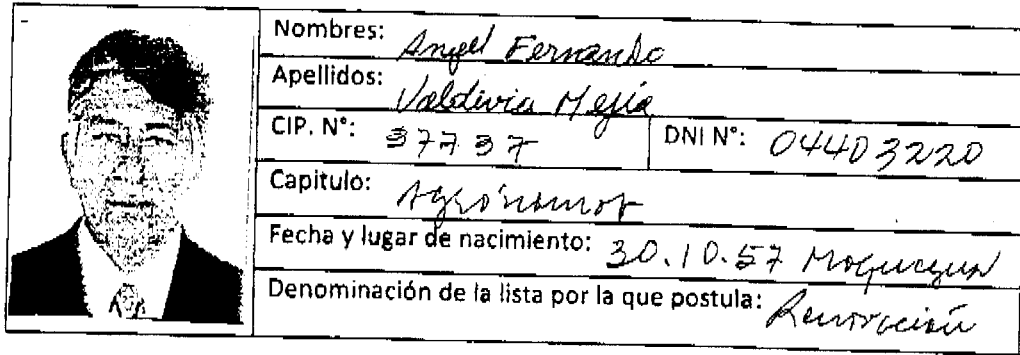 Nombres: Angel Fernando
Apellidos: Valdivia Mejía
CIP. N°: 37737 DNI N°: 04403220
Capitulo: Agrónomos
Fecha y lugar de nacimiento: 30.10.57 Moquegua
Denominación de la lista por la que postula: Renovación